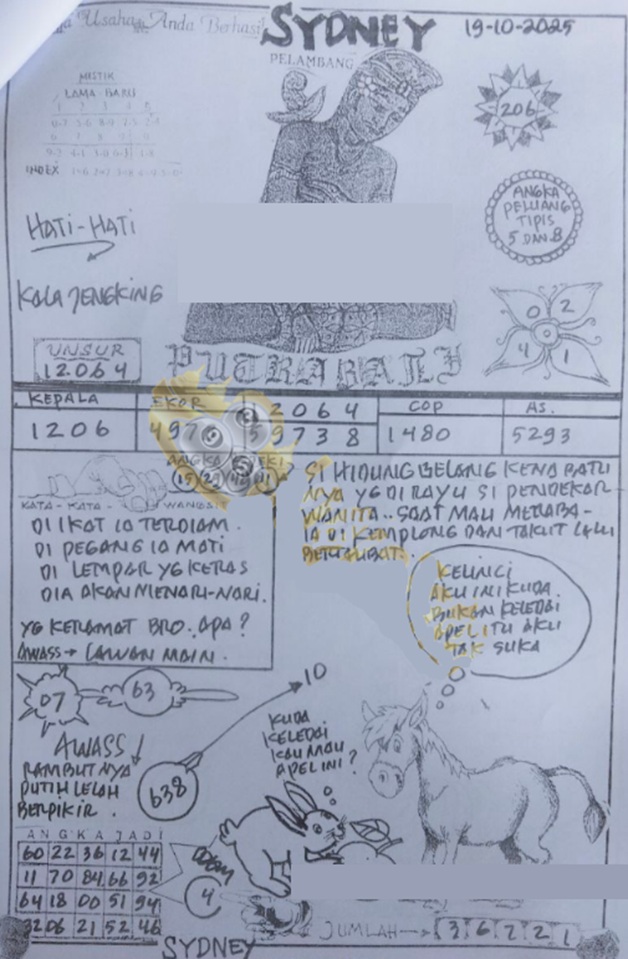 Usaha Anda Berhasil
SYDNEY
19-10-2025
PELAMBANG
MISTIK
LAMA - BARU
INDEX
206
ANGKA
PELUANG
TIPIS
5 DAN 8
HATI-HATI
KALA JENGKING
0 2
4 1
UNSUR
12064
PUTRA BALI
KEPALA EKOR 12064 COP AS.
1206 9738 1480 5293
ANGKA
KATA - KATA - WANGSI
DI IKAT IA TERDIAM.
DI PEGANG IA MATI
DI LEMPAR YG KERAS
DIA AKAN MENARI-NARI.
YG KERAMAT BRO. APA?
AWASS → LAWAN MAIN.
SI HIDUNG BELANG KENA BATU
NYA YG DI RAYU SI PENDEKAR
WANITA.. SAAT MAU MERABA-
IA DI KEMPLONG DAN TAKUT LALU
BERTAUBAT.
KELINCI
AKU INI KUDA.
BUKAN KELEDAI
APEL ITU AKU
TAK SUKA
07
63
10
AWASS!
RAMBUTNYA
PUTIH LELAH
BERPIKIR.
638
KUDA
KELEDAI
KAU MAU
APEL INI?
ANGKA JADI
60 22 36 12 44
11 70 84 66 92
64 18 00 51 94
32 06 21 52 46
4
JUMLAH → 3 6 2 2 1
SYDNEY